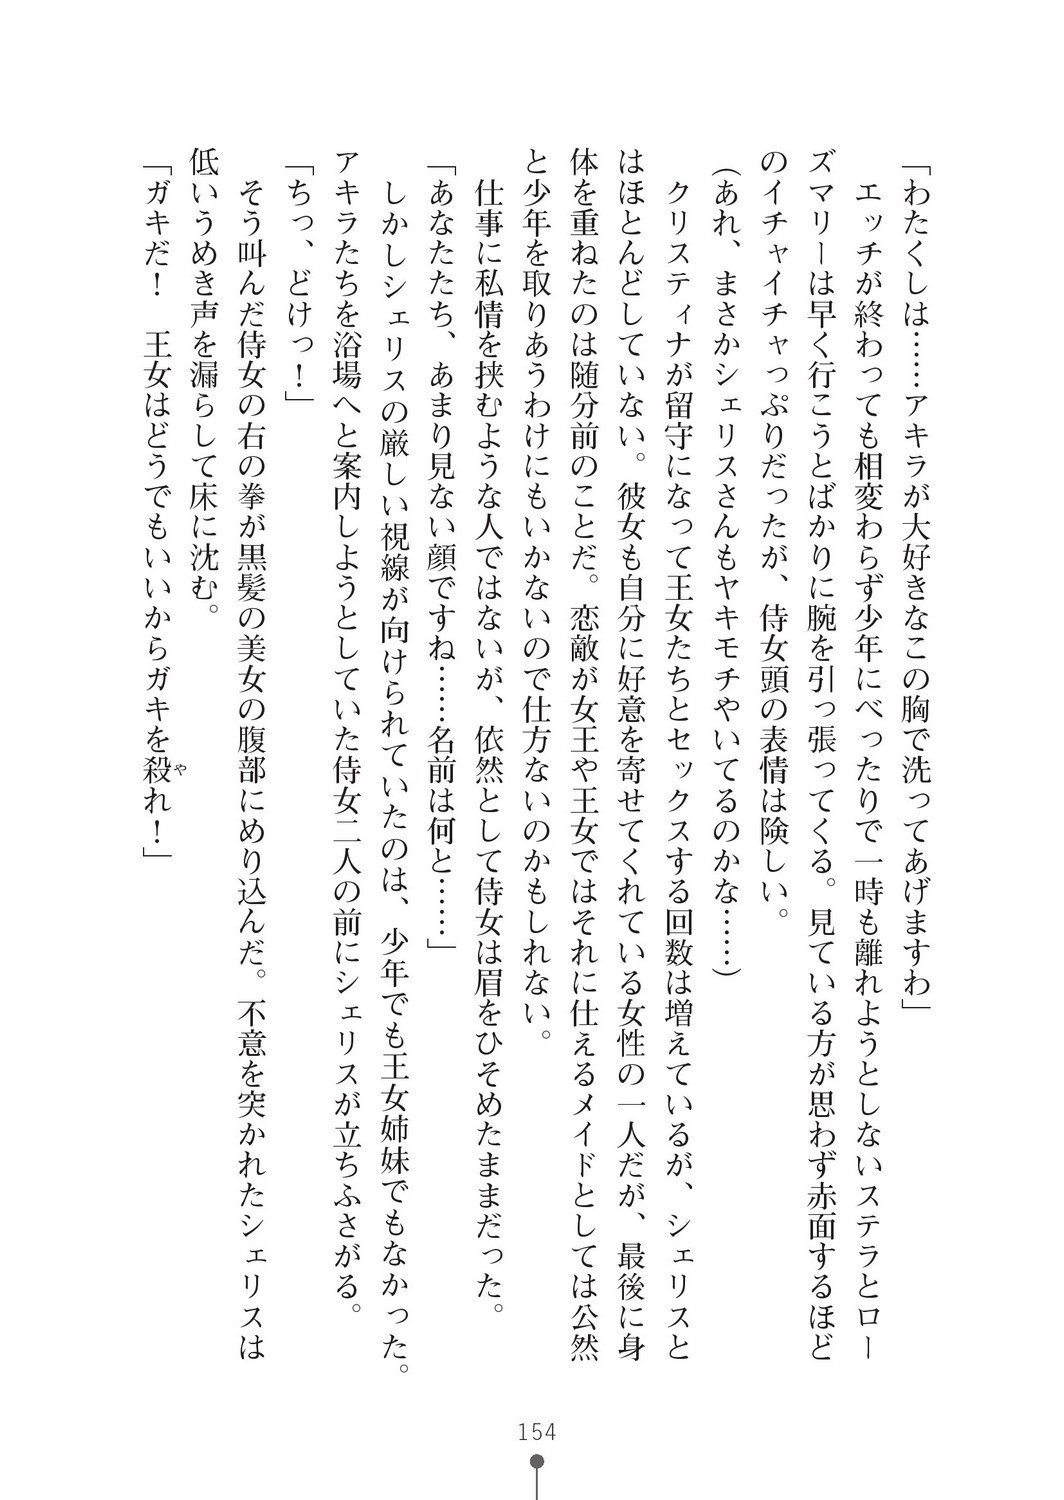 「わたくしは……アキラが大好きなこの胸で洗ってあげますわ」
エッチが終わっても相変わらず少年にべったりで一時も離れようとしないステラとロー
ズマリーは早く行こうとばかりに腕を引っ張ってくる。見ている方が思わず赤面するほど
のイチャイチャっぷりだったが、侍女頭の表情は険しい。
(あれ、まさかシェリスさんもヤキモチやいてるのかな……)
クリスティナが留守になって王女たちとセックスする回数は増えているが、シェリスと
はほとんどしていない。彼女も自分に好意を寄せてくれている女性の一人だが、最後に身
体を重ねたのは随分前のことだ。恋敵が女王や王女ではそれに仕えるメイドとしては公然
と少年を取りあうわけにもいかないので仕方ないのかもしれない。
仕事に私情を挟むような人ではないが、依然として侍女は眉をひそめたままだった。
「あなたたち、あまり見ない顔ですね……名前は何と……」
しかしシェリスの厳しい視線が向けられていたのは、少年でも王女姉妹でもなかった。
アキラたちを浴場へと案内しようとしていた侍女二人の前にシェリスが立ちふさがる。
「ちっ、どけっ！」
そう叫んだ侍女の右の拳が黒髪の美女の腹部にめり込んだ。不意を突かれたシェリスは
低いうめき声を漏らして床に沈む。
「ガキだ！　王女はどうでもいいからガキを殺れ！」
や
154